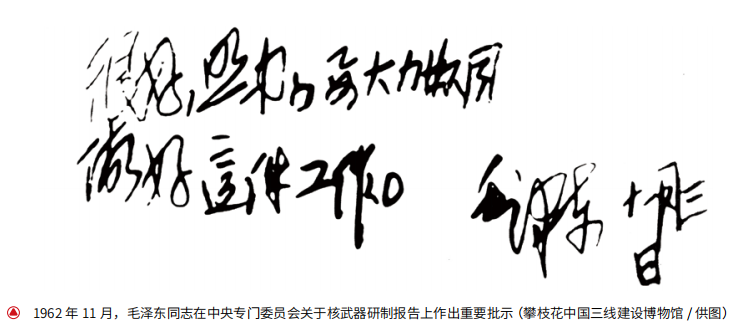 很好,照办。要大力协同
做好这件工作。
毛泽东 十一月三日
1962 年 11 月，毛泽东同志在中央专门委员会关于核武器研制报告上作出重要批示（攀枝花中国三线建设博物馆 / 供图）